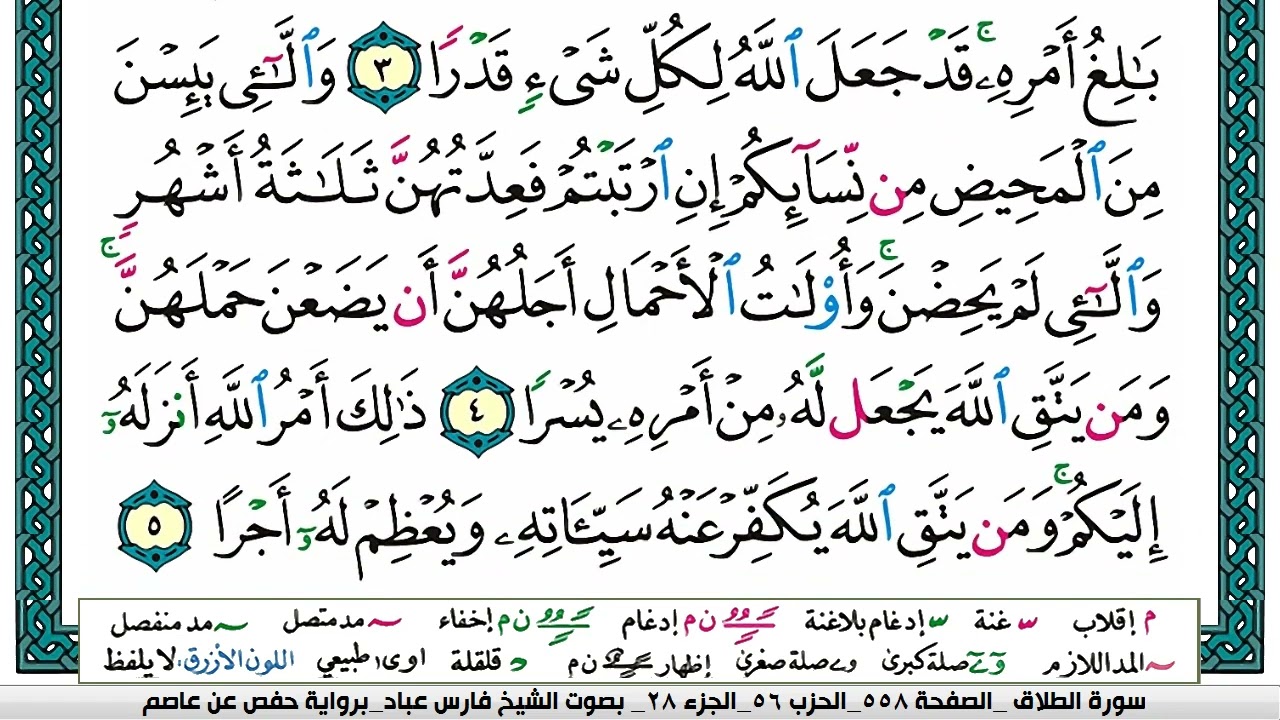 بَـٰلِغُ أَمْرِهِۦۚ قَدْ جَعَلَ ٱللَّهُ لِكُلِّ شَىْءٍ قَدْرًا ٣ وَٱلَّـٰٓـِٔى يَئِسْنَ
مِنَ ٱلْمَحِيضِ مِن نِّسَآئِكُمْ إِنِ ٱرْتَبْتُمْ فَعِدَّتُهُنَّ ثَلَـٰثَةُ أَشْهُرٍ
وَٱلَّـٰٓـِٔى لَمْ يَحِضْنَۚ وَأُو۟لَـٰتُ ٱلْأَحْمَالِ أَجَلُهُنَّ أَن يَضَعْنَ حَمْلَهُنَّۚ
وَمَن يَتَّقِ ٱللَّهَ يَجْعَل لَّهُۥ مِنْ أَمْرِهِۦ يُسْرًا ٤ ذَٰلِكَ أَمْرُ ٱللَّهِ أَنزَلَهُۥٓ
إِلَيْكُمْۚ وَمَن يَتَّقِ ٱللَّهَ يُكَفِّرْ عَنْهُ سَيِّـَٔاتِهِۦ وَيُعْظِمْ لَهُۥٓ أَجْرًا ٥
م إقلاب غنة إدغام بلاغنة ن م إدغام ن م إخفاء مد متصل مد منفصل
المد اللازم صلة كبرى صلة صغرى إظهار ن م قلقلة اوى طبيعي اللون الأزرق: لا يلفظ
سورة الطلاق _الصفحة ٥٥٨_الحزب ٥٦_الجزء ٢٨_ بصوت الشيخ فارس عباد_برواية حفص عن عاصم